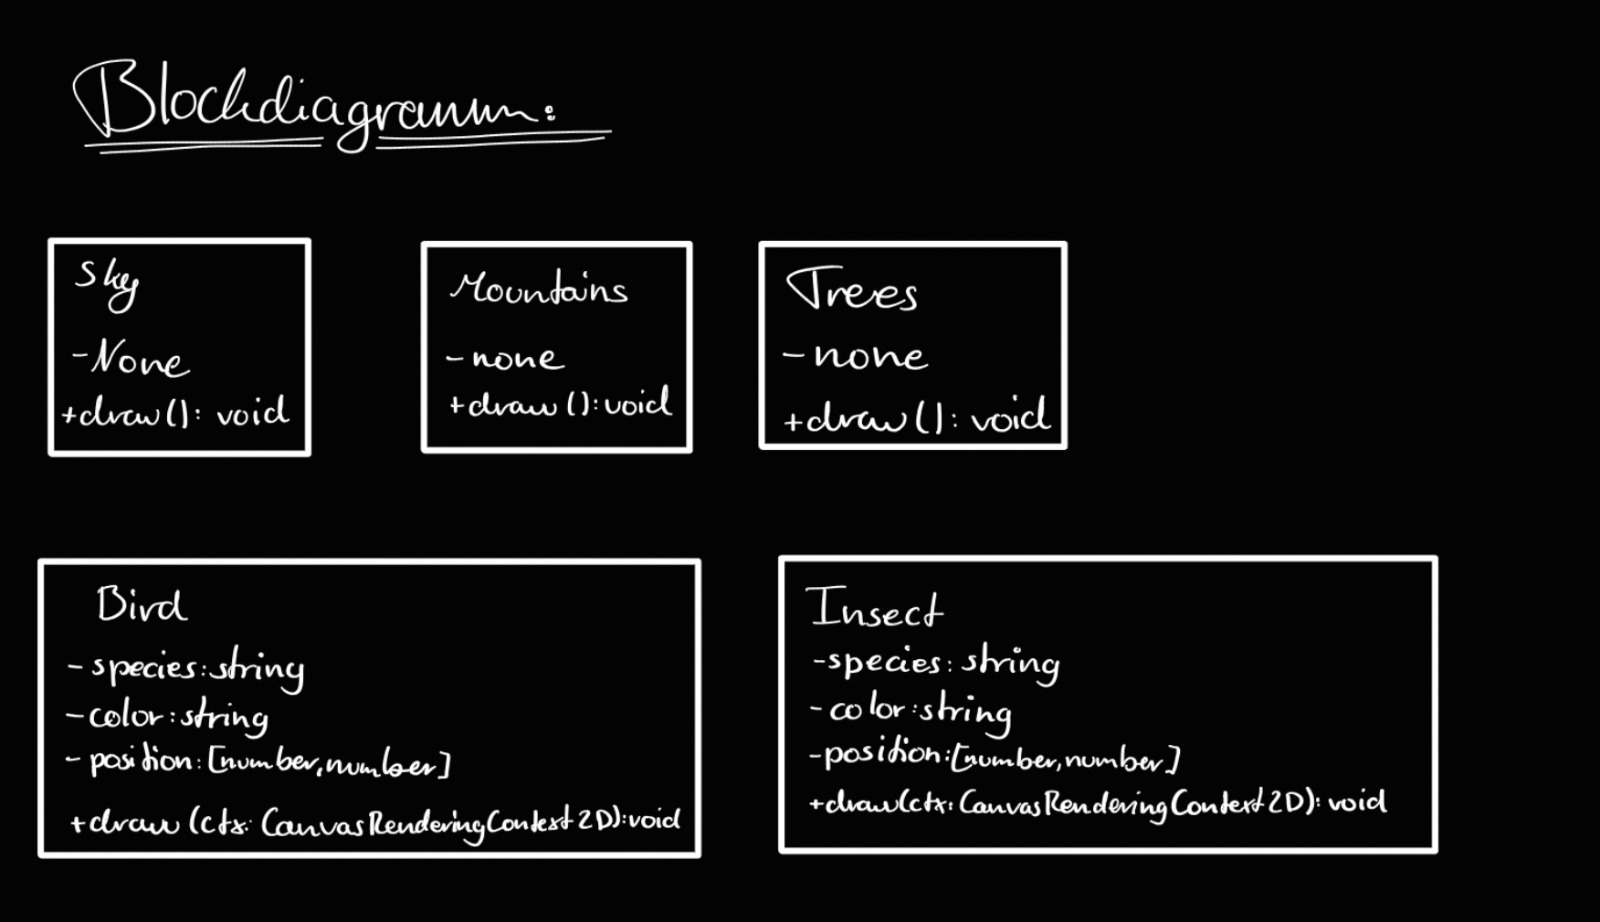 Blockdiagramm:
Sky
-None
+draw(): void
Mountains
-none
+draw():void
Trees
-none
+draw(): void
Bird
-species:string
-color:string
-position:[number,number]
+draw(ctx: CanvasRenderingContext2D):void
Insect
-species: string
-color:string
-position:[number,number]
+draw(ctx: CanvasRenderingContext2D): void